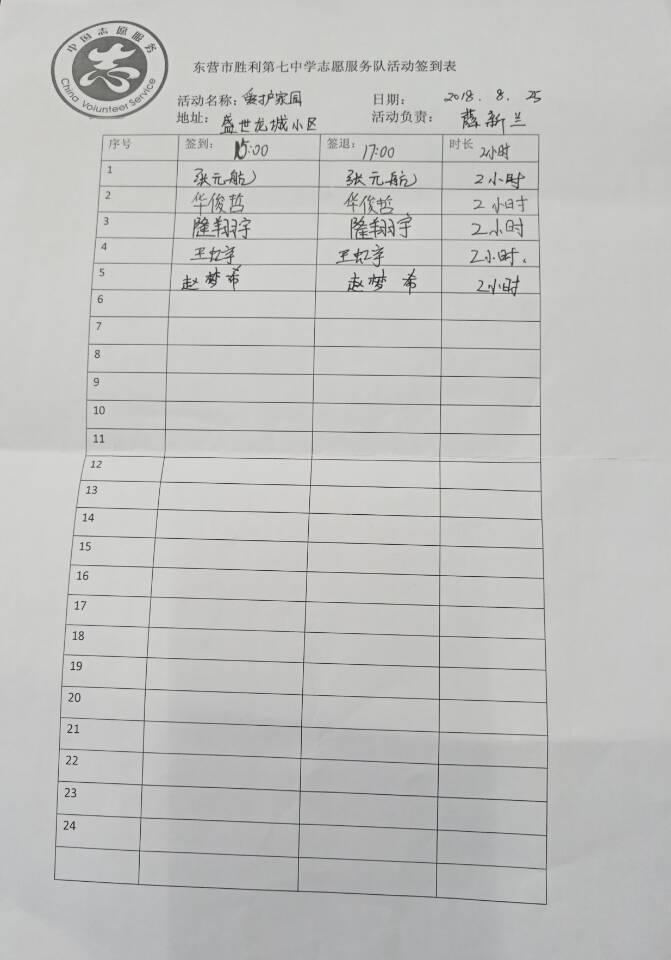 中国志愿服务
志
China Volunteer Service
东营市胜利第七中学志愿服务队活动签到表
活动名称：爱护家园 日期： 2018.8.25
地址： 盛世龙城小区 活动负责： 薛新兰
序号 签到： 15:00 签退： 17:00 时长 2小时
1 张元航 张元航 2小时
2 华俊哲 华俊哲 2小时
3 隆翔宇 隆翔宇 2小时
4 王虹宇 王虹宇 2小时.
5 赵梦希 赵梦希 2小时
6
7
8
9
10
11
12
13
14
15
16
17
18
19
20
21
22
23
24